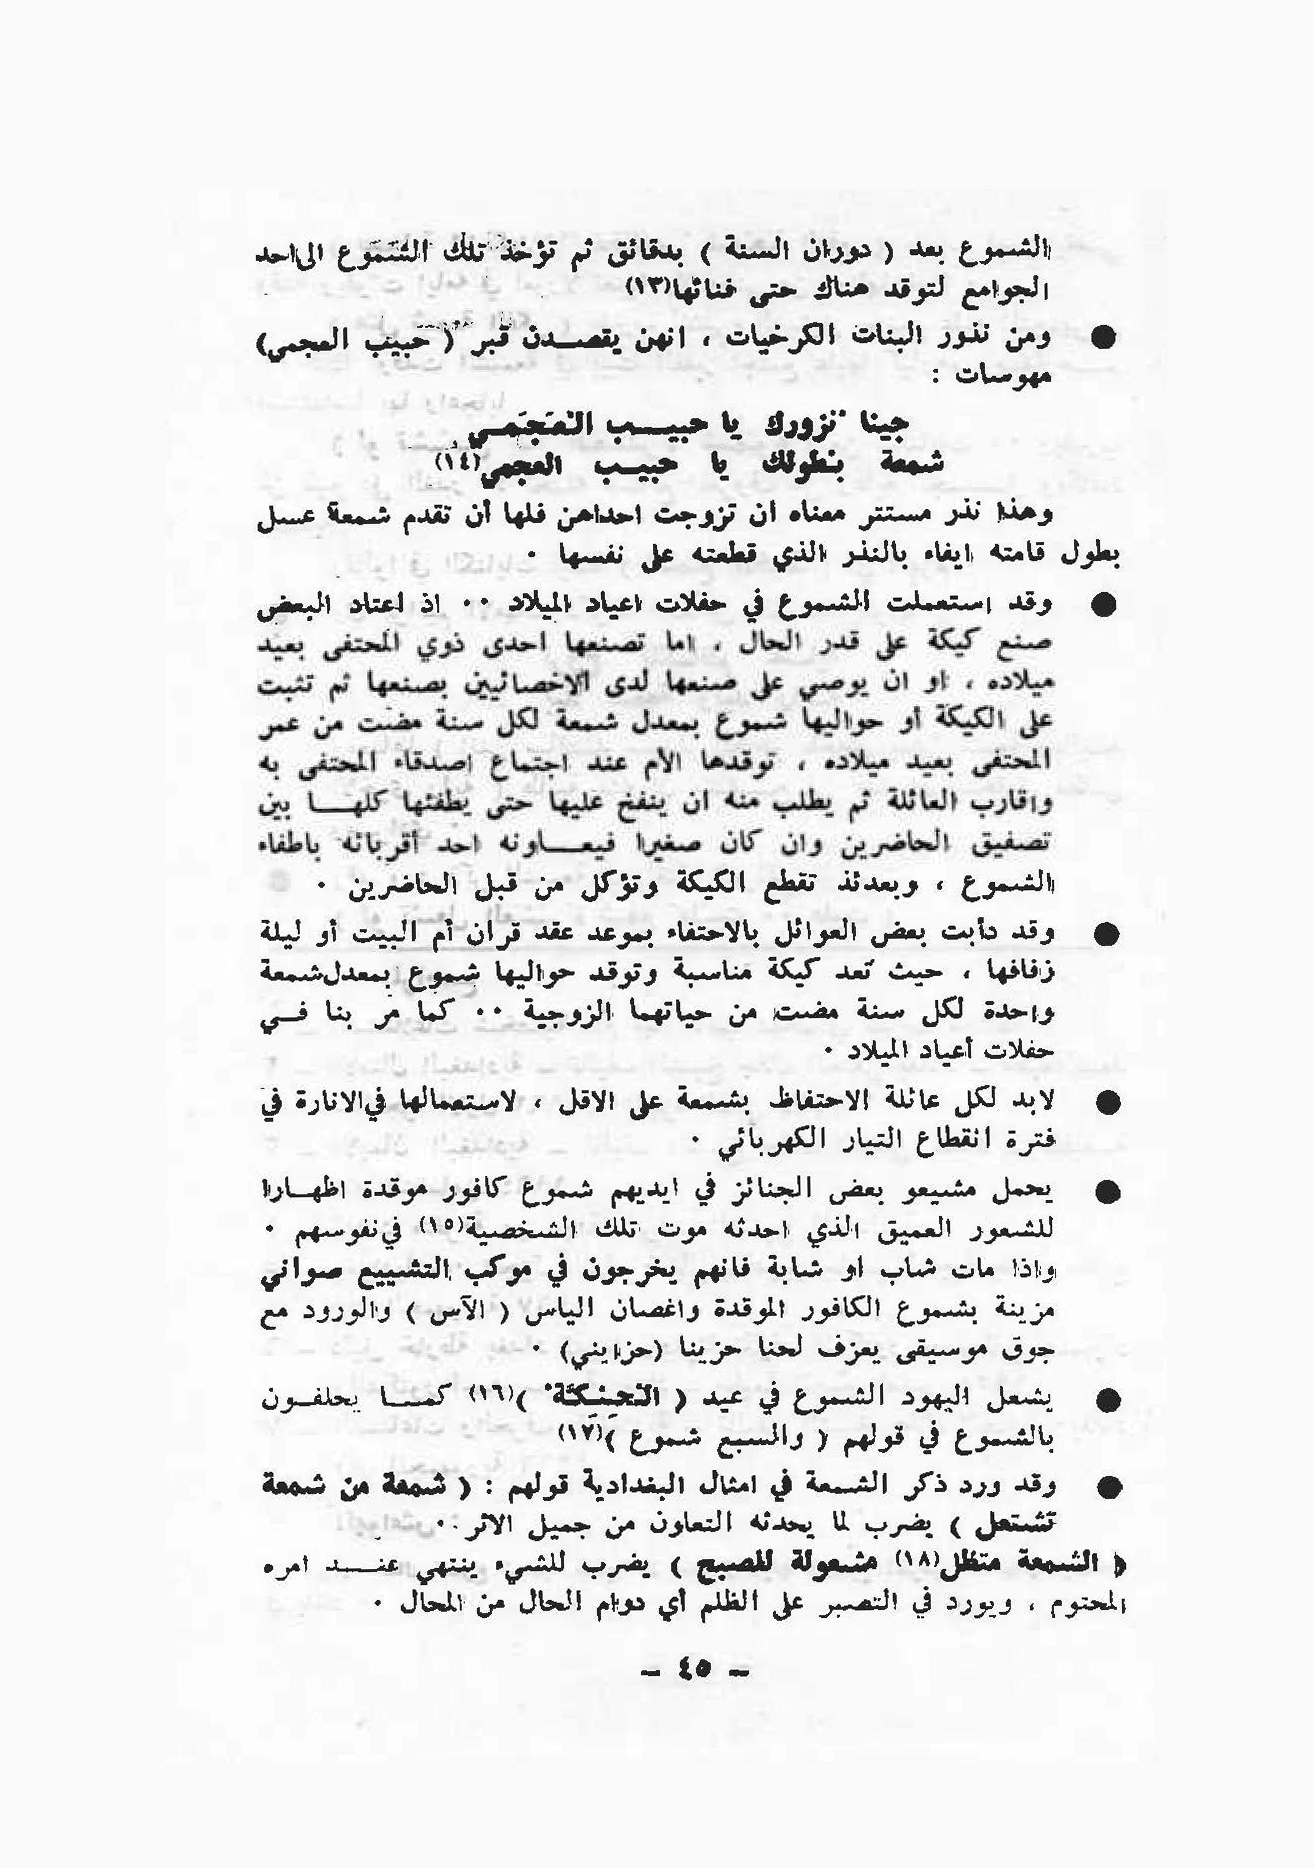 الشموع بعد ( دوران السنة ) بدقائق ثم تؤخذ تلك الشموع الى احد
الجوامع لتوقد هناك حتى فنائها(١٣)
● ومن نذور البنات الكرخيات ، انهن يقصـــدن قبر ( حبيب العجمي)
مهوسات :
جينا نزورك يا حبيـــب العَجَمـي
شمعة بطولك يا حبيـب العجمي(١٤)
وهذا نذر مستتر معناه ان تزوجت احداهن فلها أن تقدم شمعة عسل
بطول قامته ايفاء بالنذر الذي قطعته على نفسها ٠
● وقد استعملت الشموع في حفلات اعياد الميلاد ٠٠ اذ اعتاد البعض
صنع كيكة على قدر الحال ، اما تصنعها احدى ذوي المحتفى بعيد
ميلاده ، او ان يوصي على صنعها لدى الاخصائيين بصنعها ثم تثبت
على الكيكة أو حواليها شموع بمعدل شمعة لكل سنة مضت من عمر
المحتفى بعيد ميلاده ، توقدها الأم عند اجتماع اصدقاء المحتفى به
واقارب العائلة ثم يطلب منه ان ينفخ عليها حتى يطفئها كلهـــا بين
تصفيق الحاضرين وان كان صغيرا فيعـــاونه احد أقربائه باطفاء
الشموع ، وبعدئذ تقطع الكيكة وتؤكل من قبل الحاضرين ٠
● وقد دأبت بعض العوائل بالاحتفاء بموعد عقد قران أم البيت أو ليلة
زفافها ، حيث تعد كيكة مناسبة وتوقد حواليها شموع بمعدل شمعة
واحدة لكل سنة مضت من حياتهما الزوجية ٠٠ كما مر بنا فـــي
حفلات أعياد الميلاد ٠
● لابد لكل عائلة الاحتفاظ بشمعة على الاقل ، لاستعمالها في الانارة في
فترة انقطاع التيار الكهربائي ٠
● يحمل مشيعو بعض الجنائز في ايديهم شموع كافور موقدة اظهـــارا
للشعور العميق الذي احدثه موت تلك الشخصية(١٥) في نفوسهم ٠
واذا مات شاب او شابة فانهم يخرجون في موكب التشييع صواني
مزينة بشموع الكافور الموقدة واغصان الياس ( الآس ) والورود مع
جوق موسيقى يعزف لحنا حزينا (حزايني) ٠
● يشعل اليهود الشموع في عيد ( الحِنِكّة )(١٦) كمـــا يحلفـــون
بالشموع في قولهم ( والسبع شموع )(١٧)
● وقد ورد ذكر الشمعة في امثال البغدادية قولهم : ( شمعة من شمعة
تشتعل ) يضرب لما يحدثه التعاون من جميل الاثر ٠
( الشمعة متظل(١٨) مشعولة للصبح ) يضرب للشيء ينتهي عنـــد امره
المحتوم ، ويورد في التصبر على الظلم أي دوام الحال من المحال ٠
– ٤٥ –